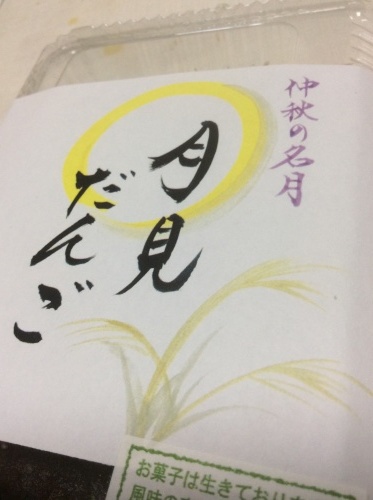 仲秋の名月
月見
だんご
お菓子は生きており
風味の